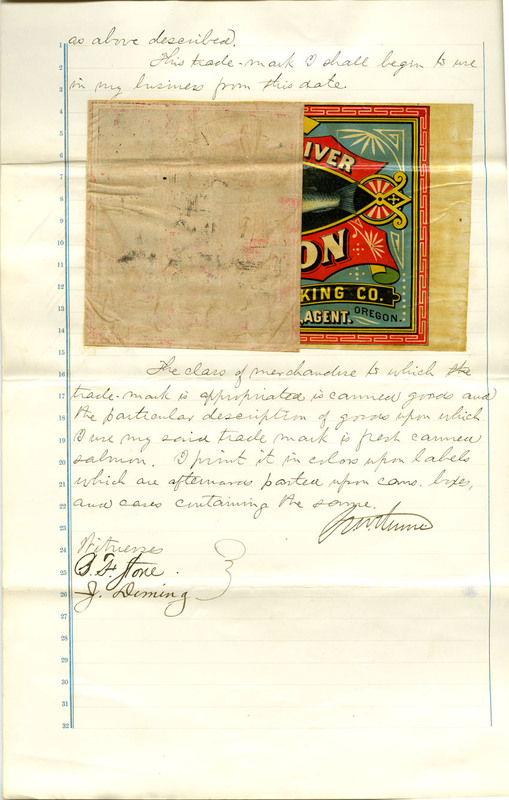 1
as above described.
2
This trade-mark I shall begin to use
3
in my business from this date.
4
5
IVER
6
7
8
9
10
ON
11
12
KING CO.
13
AGENT. OREGON.
14
15
16
The class of merchandise to which the
17
trade-mark is appropriated is canned goods and
18
the particular description of goods upon which
19
I use my said trade mark is fresh canned
20
salmon. I print it in colors upon labels
21
which are afterwards pasted upon cans, boxes,
22
and cases containing the same.
23
24
Witnesses
25
B. F. Stone.
26
J. Deming
27
28
29
30
31
32